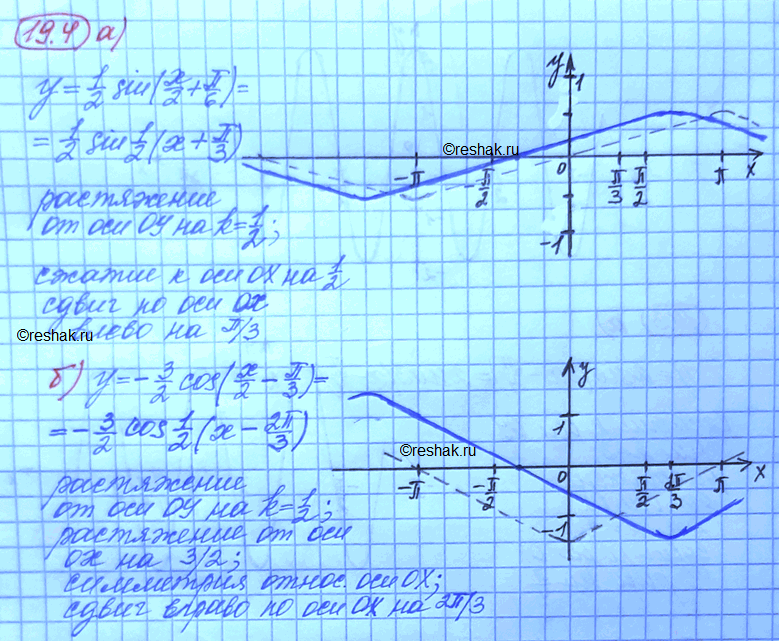 19.4 а)
y = 1/2 sin(x/2 + π/6) =
= 1/2 sin 1/2 (x + π/3)
растяжение
от оси ОУ на k = 1/2;
сжатие к оси ОХ на 1/2
сдвиг по оси ОХ
влево на π/3
©reshak.ru
y
1
©reshak.ru
-π
-π/2
0
π/3
π/2
π
x
-1
б) y = -3/2 cos(x/2 - π/3) =
= -3/2 cos 1/2 (x - 2π/3)
растяжение
от оси ОУ на k = 1/2;
растяжение от оси
ОХ на 3/2;
симметрия относ. оси ОХ;
сдвиг вправо по оси ОХ на 2π/3
y
1
©reshak.ru
-π
-π/2
0
π/2
2π/3
π
x
-1